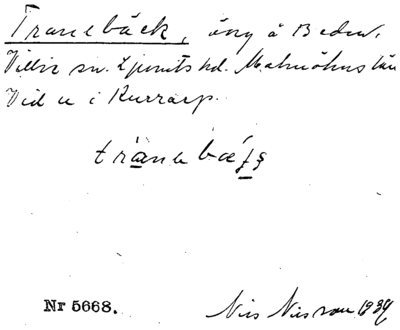 Tranebäck, äng å Bedw.
Villie sn. Ljunits hd. Malmöhus län
Vid u i Kurrarp.
tranebæ
Nr 5668.
Nils Nilsson 1934